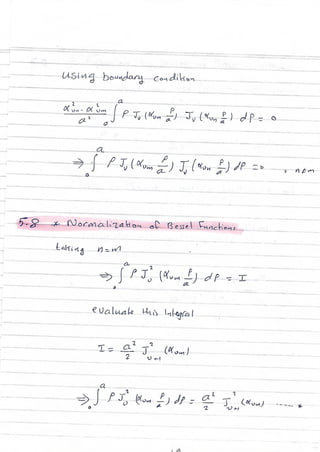 using boundary condition
α²υn - α²υm / a² ∫₀ᵃ ρ Jυ (αυm ρ/a) Jυ (αυn ρ/a) dρ = 0
⇒ ∫₀ᵃ ρ Jυ (αυm ρ/a) Jυ (αυn ρ/a) dρ = 0 , n≠m
5.8 * Normalization of Bessel Functions
taking n=m
⇒ ∫₀ᵃ ρ J²υ (αυm ρ/a) dρ = I
evaluate this integral
I = a²/2 J²υ+1 (αυm)
⇒ ∫₀ᵃ ρ J²υ (αυm ρ/a) dρ = a²/2 J²υ+1 (αυm) ----- *